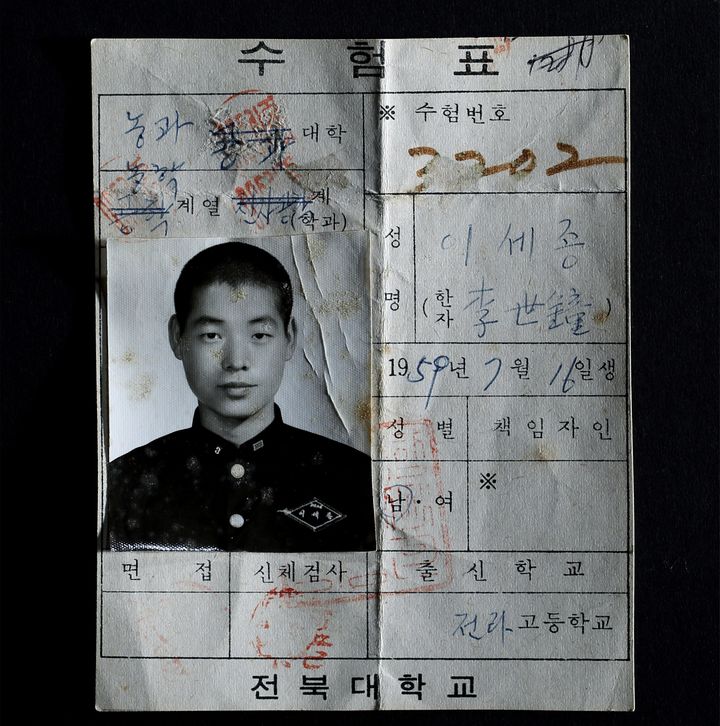 수 험 표
농과 대학
※ 수험번호
농학
2202
계열 계
(학과)
성 명
이 세 종
(한자 李世鐘)
1959년 7월 16일생
성 별
책임자인
남 · 여
※
이세종
면 접
신체검사
출 신 학 교
전라고등학교
전북대학교